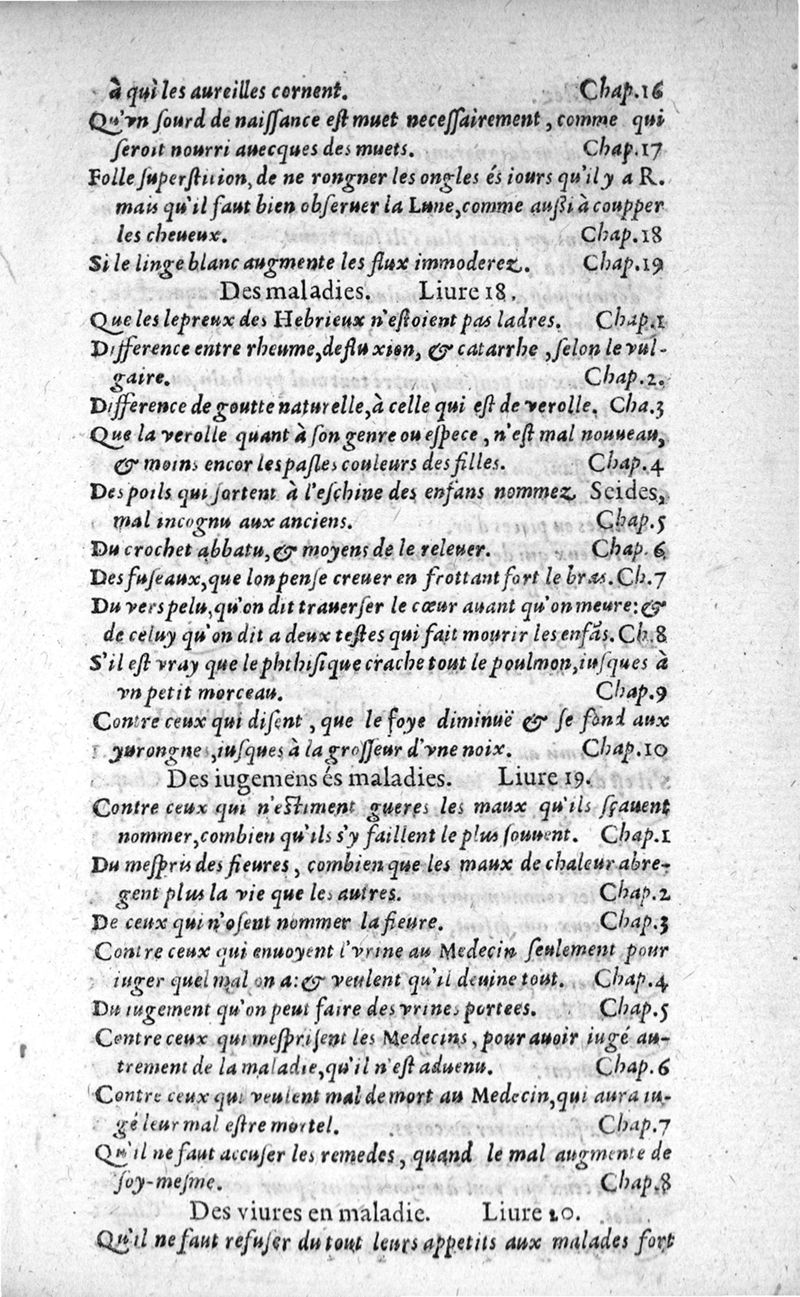 à qui les aureilles cornent. Chap.16
Qu'vn ſourd de naiſſance eſt muet neceſſairement, comme qui
ſeroit nourri auecques des muets. Chap.17
Folle ſuperſtition, de ne rongner les ongles és iours qu'il y a R.
mais qu'il faut bien obſeruer la Lune, comme auſſi à coupper
les cheueux. Chap.18
Si le linge blanc augmente les flux immoderez. Chap.19
Des maladies. Liure 18.
Que les lepreux des Hebrieux n'eſtoient pas ladres. Chap.1
Difference entre rheume, defluxion, & catarrhe, ſelon le vul-
gaire. Chap.2.
Difference de goutte naturelle, à celle qui eſt de verolle. Cha.3
Que la verolle quant à ſon genre ou eſpece, n'eſt mal nouueau,
& moins encor les paſles couleurs des filles. Chap.4
Des poils qui ſortent à l'eſchine des enfans nommez Seides,
mal incognu aux anciens. Chap.5
Du crochet abbatu, & moyens de le releuer. Chap.6
Des fuſeaux, que lon penſe creuer en frottant fort le bras. Ch.7
Du vers pelu, qu'on dit trauerſer le cœur auant qu'on meure: &
de celuy qu'on dit a deux teſtes qui fait mourir les enfãs. Ch.8
S'il eſt vray que le phthiſique crache tout le poulmon, iuſques à
vn petit morceau. Chap.9
Contre ceux qui diſent, que le foye diminuë & ſe fond aux
yurongnes, iuſques à la groſſeur d'vne noix. Chap.10
Des iugemens és maladies. Liure 19.
Contre ceux qui n'eſtiment gueres les maux qu'ils ſçauent
nommer, combien qu'ils s'y faillent le plus ſouuent. Chap.1
Du meſpris des fieures, combien que les maux de chaleur abre-
gent plus la vie que les autres. Chap.2
De ceux qui n'oſent nommer la fieure. Chap.3
Contre ceux qui enuoyent l'vrine au Medecin ſeulement pour
iuger quel mal on a: & veulent qu'il deuine tout. Chap.4
Du iugement qu'on peut faire des vrines portees. Chap.5
Contre ceux qui meſpriſent les Medecins, pour auoir iugé au-
trement de la maladie, qu'il n'eſt aduenu. Chap.6
Contre ceux qui veulent mal de mort au Medecin, qui aura iu-
gé leur mal eſtre mortel. Chap.7
Qu'il ne faut accuſer les remedes, quand le mal augmente de
ſoy-meſme. Chap.8
Des viures en maladie. Liure 20.
Qu'il ne faut refuſer du tout leurs appetits aux malades fort